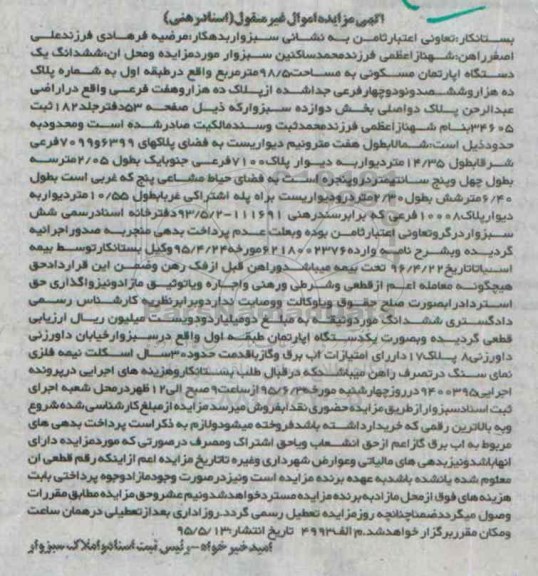 اگهی مزایده اموال غیرمنقول(اسنادرهنی)
بستانکار:تعاونی اعتبارثامن به نشانی سبزواربدهکار:مرضیه فرهادی فرزندعلی
اصغرراهن:شهنازاعظمی فرزندمحمدساکنین سبزوار موردمزایده ومحل ان:ششدانگ یک
دستگاه اپارتمان مسکونی به مساحت۹۸/۵مترمربع واقع درطبقه اول به شماره پلاک
ده هزاروششصدونودوچهارفرعی جداشده ازپلاک ده هزاروهفت فرعی واقع دراراضی
عبدالرحن پلاک دواصلی بخش دوازده سبزوارکه ذیل صفحه ۵۳دفترجلد۱۸۲ثبت
۳۴۶۰۵بنام شهنازاعظمی فرزندمحمدثبت وسندمالکیت صادرشده است ومحدودبه
حدودذیل است:شمالابطول هفت مترونیم دیواریست به فضای پلاکهای ۶۳۹۹و۷۰۹۹فرعی
شرقابطول ۱۴/۳۵متردیواربه دیوار پلاک۷۱۰۰فرعی جنوبایک بطول ۲/۰۵مترسه
بطول چهل وپنج سانتیمتردروپنجره است به فضای حیاط مشاعی پنج که غربی است بطول
۶/۴۰مترشش بطول۲/۳۰متردرودیواریست براه پله اشتراکی غربابطول ۱۰/۵۵متردیواربه
دیوارپلاک۱۰۰۰۸فرعی که برابرسندرهنی ۱۱۱۶۹۱-۹۳/۵/۲دفترخانه اسنادرسمی شش
سبزواردرگروتعاونی اعتبارثامن بوده وبعلت عدم پرداخت بدهی منجربه صدوراجرائیه
گردیده وبشرح نامه وارده۶۲۱۸۰۰۲۳۷۶مورخه۹۵/۴/۲۴وکیل بستانکارتوسط بیمه
اسیاتاتاریخ۹۶/۴/۲۲ تحت بیمه میباشدوراهن قبل ازفک رهن وضمن این قراردادحق
هیچگونه معامله اعم ازقطعی وشرطی ورهنی واجاره ویاتوثیق مازادونیزواگذاری حق
استردادرابصورت صلح حقوق ویاوکالت ووصایت نداردوبرابرنظریه کارشناس رسمی
دادگستری ششدانگ موردوثیقه به مبلغ دومیلیاردودویست میلیون ریال ارزیابی
قطعی گردیده وبصورت یکدستگاه اپارتمان طبقه اول واقع درسبزوارخیابان داورزنی
داورزنی۸ پلاک۱۷ دارای امتیازات اب برق وگازباقدمت حدود۳۰سال اسکلت نیمه فلزی
نمای سنگ درتصرف راهن میباشدکه درقبال طلب بستانکاروهزینه های اجرایی درپرونده
اجرایی۹۴۰۰۳۹۵ درروزچهارشنبه مورخه۹۵/۶/۳ ازساعت۹ صبح الی۱۲ظهردرمحل شعبه اجرای
ثبت اسنادسبزوارازطریق مزایده حضوری نقدابفروش میرسدمزایده ازمبلغ کارشناسی شده شروع
وبه بالاترین رقمی که خریدارداشته باشدفروخته میشودولازم به ذکراست پرداخت بدهی های
مربوط به اب برق گازاعم ازحق انشعاب ویاحق اشتراک ومصرف درصورتی که موردمزایده دارای
انهاباشدونیزبدهی های مالیاتی وعوارض شهرداری وغیره تاتاریخ مزایده اعم ازاینکه رقم قطعی ان
معلوم شده یانشده باشدبه عهده برنده مزایده است ونیزدرصورت وجودمازادوجوه پرداختی بابت
هزینه های فوق ازمحل مازادبه برنده مزایده مستردخواهدشدونیم عشروحق مزایده مطابق مقررات
وصول میگرددضمناچنانچه روزمزایده تعطیل رسمی گردد،روزاداری بعدازتعطیلی درهمان ساعت
ومکان مقرربرگزار خواهدشد.م الف۴۹۹۳ تاریخ انتشار:۹۵/۵/۱۳
امیدخیرخواه-رئیس ثبت اسنادواملاک سبزوار